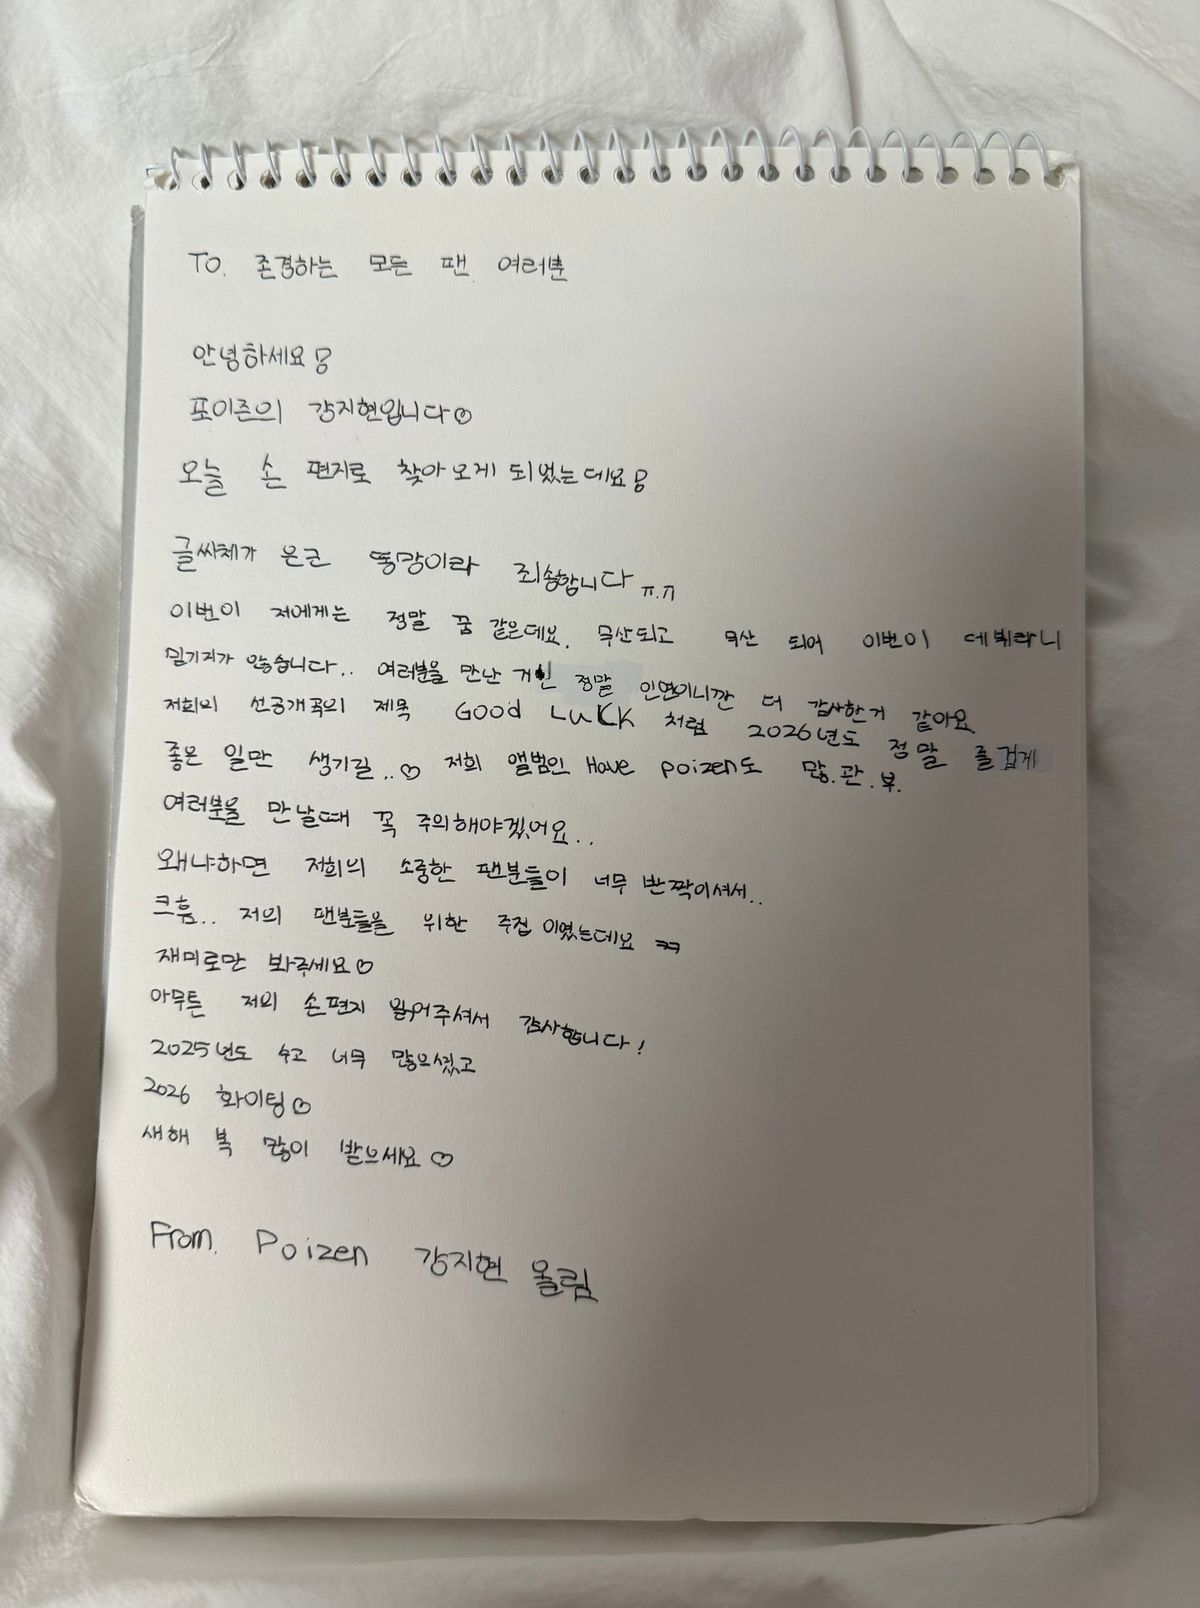 To. 존경하는 모든 팬 여러분
안녕하세요!
포이즌의 강지현입니다♡
오늘 손 편지로 찾아오게 되었는데요!
글씨체가 은근 뚱땅이라 죄송합니다 ㅠ.ㅠ
이번이 저에게는 정말 꿈 같은데요. 무산되고 무산 되어 이번이 데뷔라니
믿기지가 않습니다.. 여러분을 만난 거인 정말 인연이니깐 더 감사한거 같아요
저희의 선공개곡의 제목 GOOD LUCK 처럼 2026년도 정말 즐겁게
좋은 일만 생기길..♡ 저희 앨범인 Have poizen도 많.관.부.
여러분을 만날때 꼭 주의해야겠어요..
왜냐하면 저희의 소중한 팬분들이 너무 반짝이셔서..
크흠.. 저의 팬분들을 위한 주접 이였는데요 ㅋㅋ
재미로만 봐주세요♡
아무튼 저의 손편지 읽어주셔서 감사합니다!
2025년도 수고 너무 많으셨고
2026 화이팅♡
새해 복 많이 받으세요♡
From. Poizen 강지현 올림